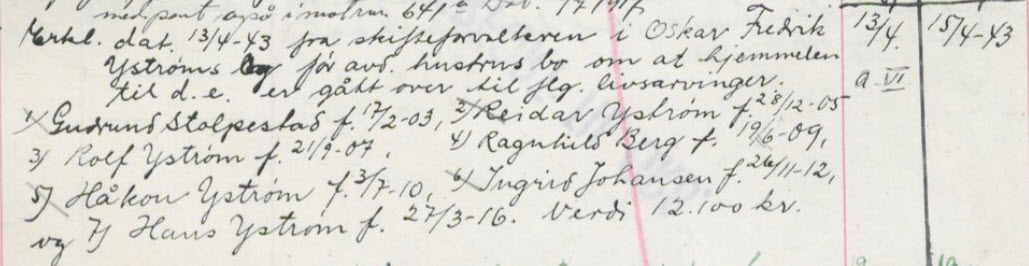 Erkl. dat. 13/4-43 fra skifteforvalteren i Oskar Fredrik 13/4. 15/4-43
Ystrøms og før avd. hustrus bo om at hjemmelen
til d.e. er gått over til flg. livsarvinger. a. VI
1) Gudrund Stolpestad f. 17/2-03, 2) Reidar Ystrøm f. 28/12-05
3) Rolf Ystrøm f. 21/9-07, 4) Ragnhild Berg f. 19/6-09,
5) Håkon Ystrøm f. 3/7-10, 6) Ingrid Johansen f. 26/11-12,
og 7) Hans Ystrøm f. 27/3-16. Verdi 12.100 kr.